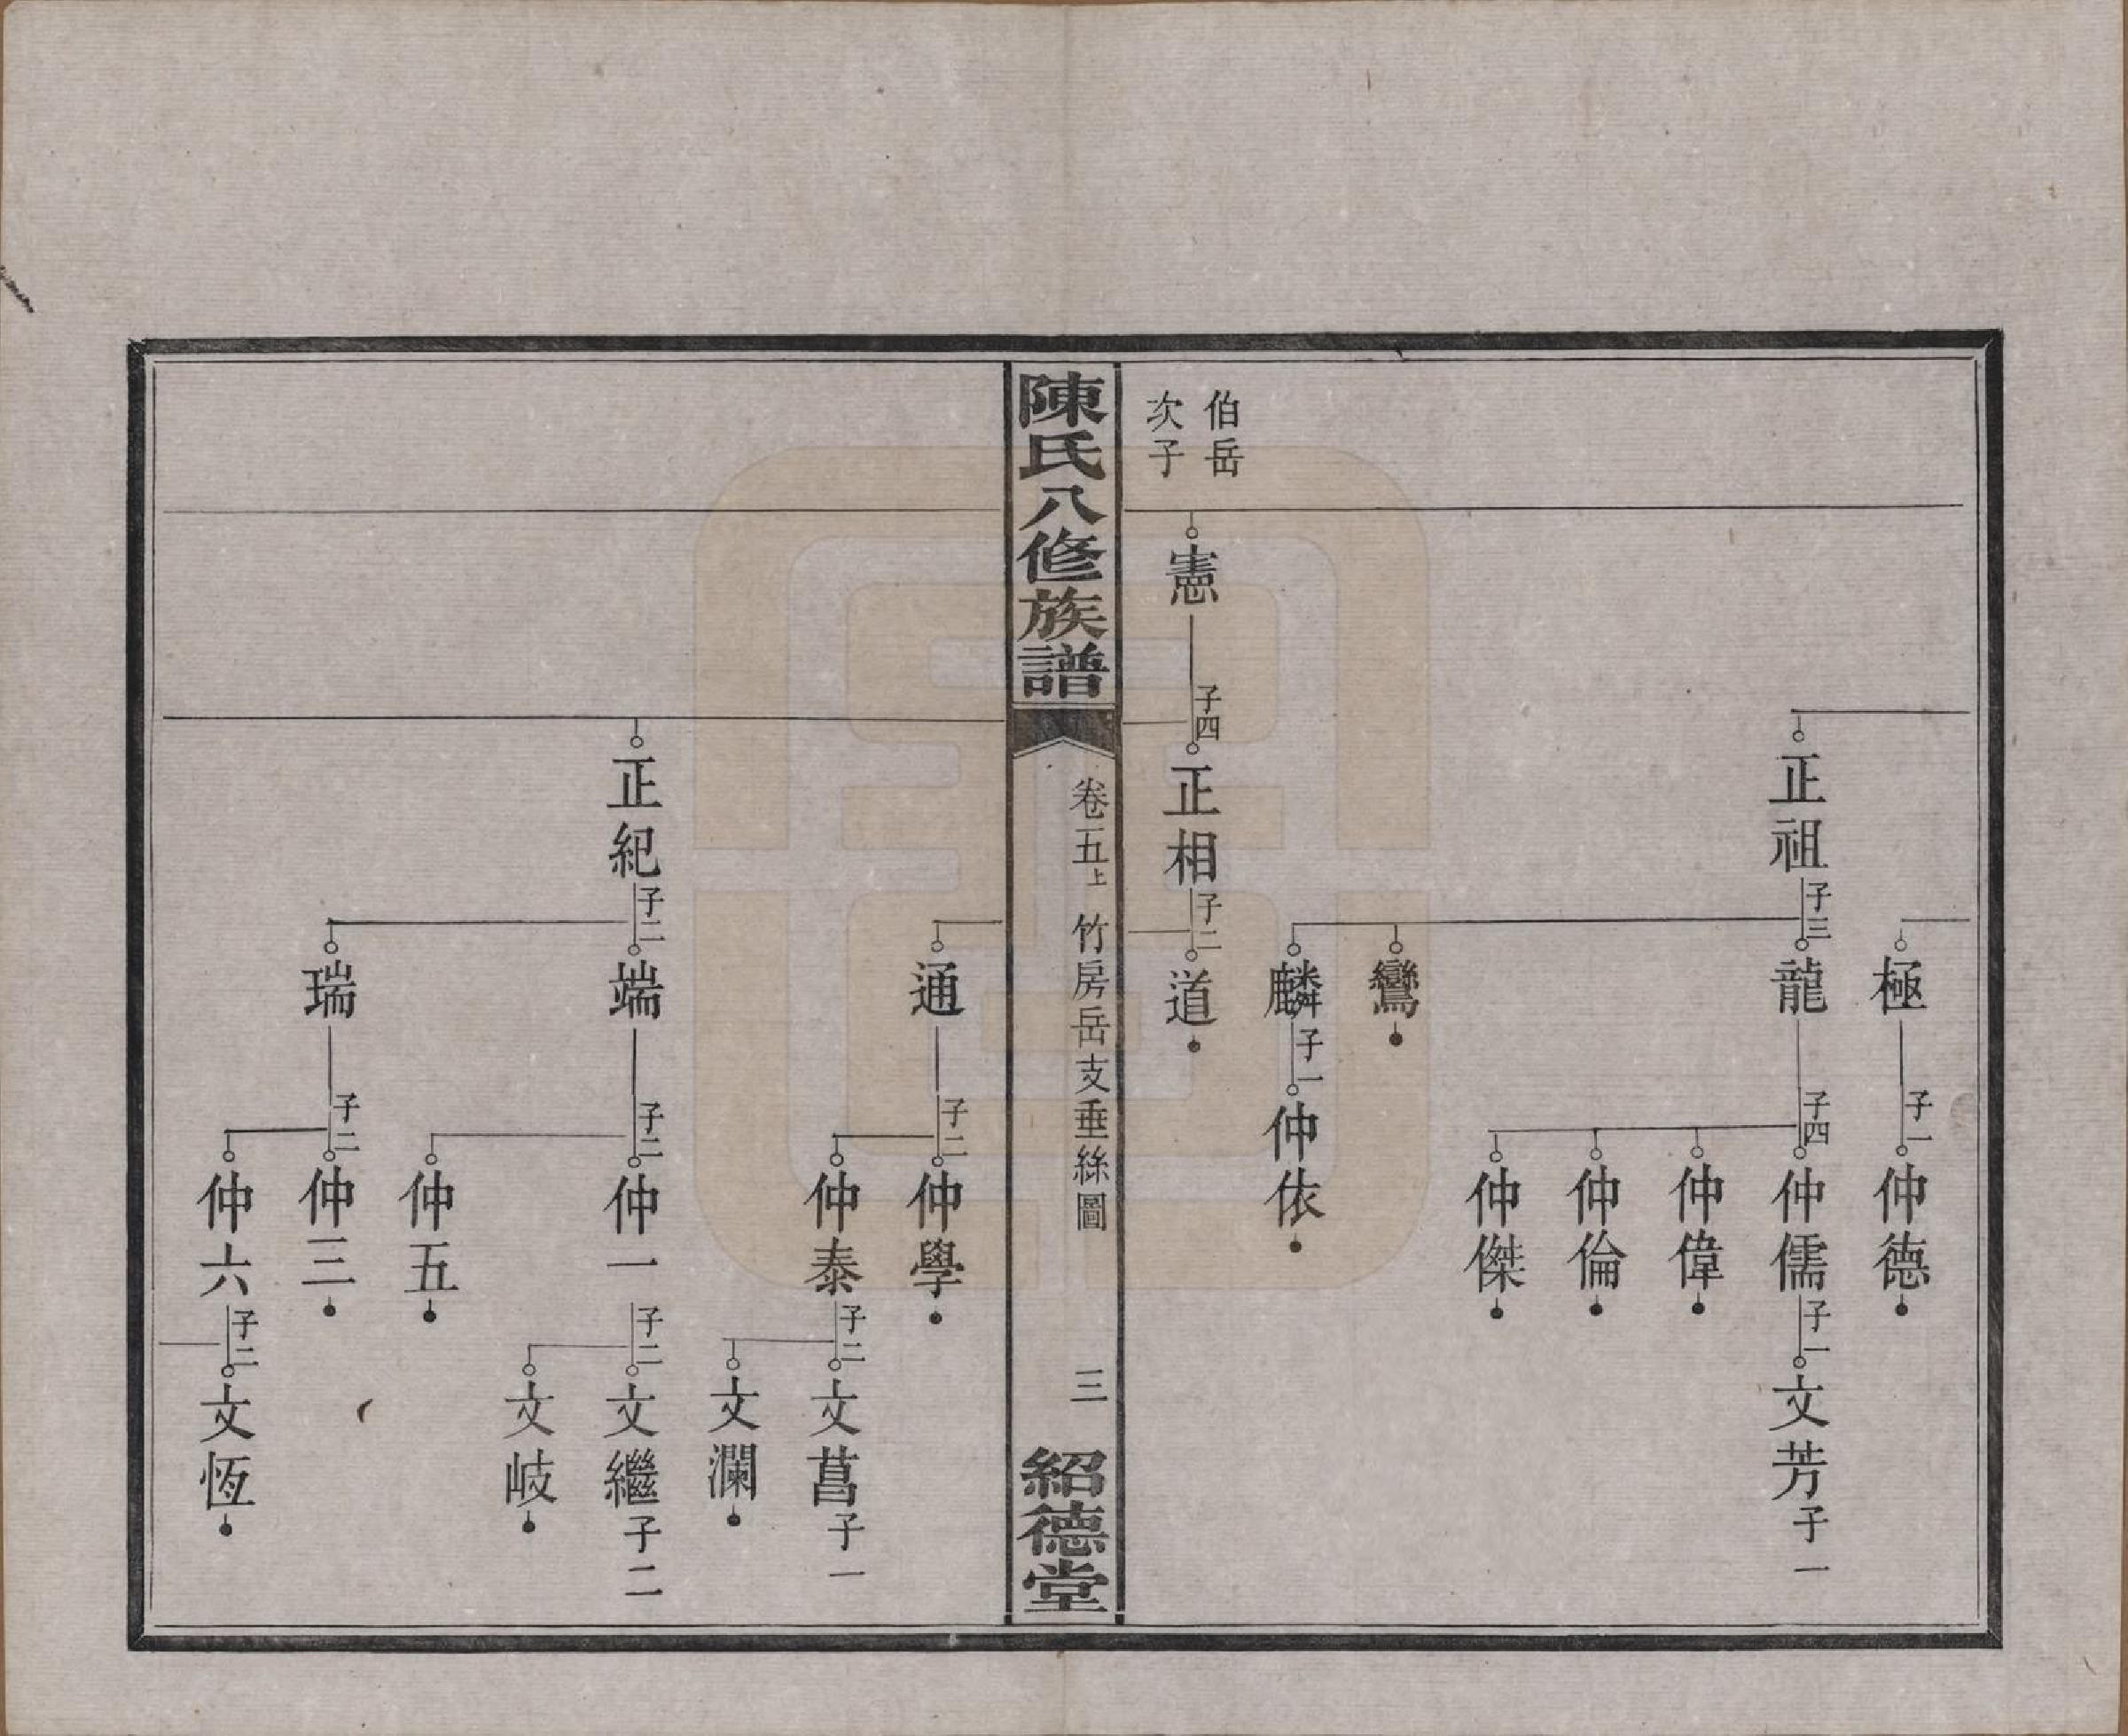 極
子一
仲德
正祖
子三
龍
子四
仲儒
子一
文芳
子一
仲偉
仲倫
仲傑
鸞
麟
子一
仲依
伯岳
次子
憲
子四
正相
子二
道
陳氏八修族譜
卷五上
竹房岳支垂絲圖
三
紹德堂
通
子二
仲學
仲泰
子二
文菖
子一
文瀾
正紀
子二
端
子二
仲一
子二
文繼
子二
文岐
仲五
瑞
子二
仲三
仲六
子二
文恆